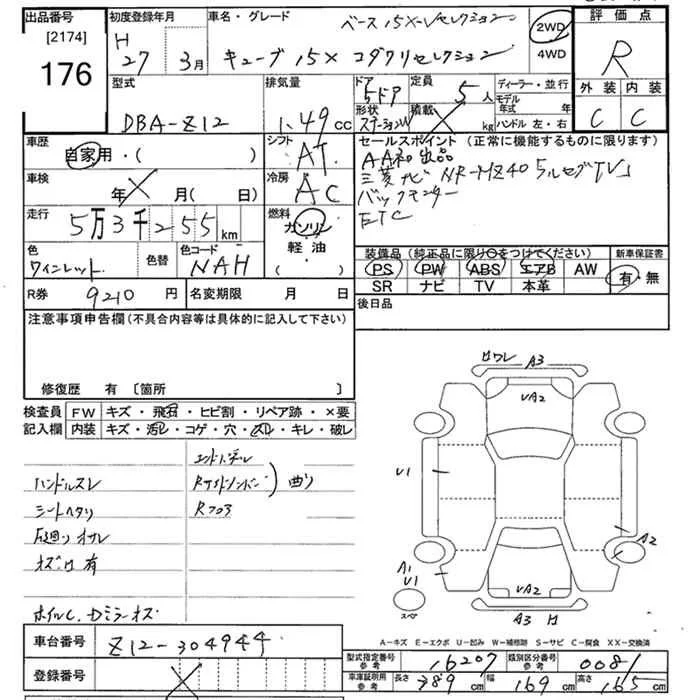 出品番号
[2174]
176
初度登録年月
H
27 3月
車名・グレード
ベース 15X-Vセレクション
キューブ 15X コダワリセレクション
2WD
4WD
評価点
R
外装 内装
C C
型式
DBA-Z12
排気量
1.49 cc
ドア
5ドア
形状
定員
5 人
積載
kg
ディーラー・並行
モデル年式 年
ハンドル 左・右
車歴
自家用・( )
シフト
AT
セールスポイント (正常に機能するものに限ります)
AA初出品
三菱ナビ NR-MZ40 フルセグTV
バックモニター
ETC
車検
年 月( 日)
冷房
AC
走行
5万3千255 km
燃料
ガソリン
軽油
( )
色
ワインレット
色替
色コード
NAH
装備品 (純正品に限り○をつけてください)
新車保証書
PS PW ABS エアB AW
有・無
SR ナビ TV 本革
R券 9210 円
名変期限 月 日
後日品
注意事項申告欄 (不具合内容等は具体的に記入して下さい)
修復歴 有 〔箇所 〕
検査員
記入欄
FW キズ・飛石・ヒビ割・リペア跡・×要
内装 キズ・汚レ・コゲ・穴・スレ・キレ・破レ
ハンドルスレ
シートヘタリ
ネジ口有
ホイルC.Dミラーキズ
Rサイドメンバー
曲り
Rフロア
ロワレ A3
VA2
U1
A2
A1
U1
スペア
VA2
A3 H
A-キズ E-エクボ U-凹み W-補修跡 S-サビ C-腐食 XX-交換済
車台番号
Z12-304944
登録番号
型式指定番号
参考
16207
類別区分番号
参考
0081
車庫証明用
参考
長さ 389 cm
幅 169 cm
高さ 165 cm